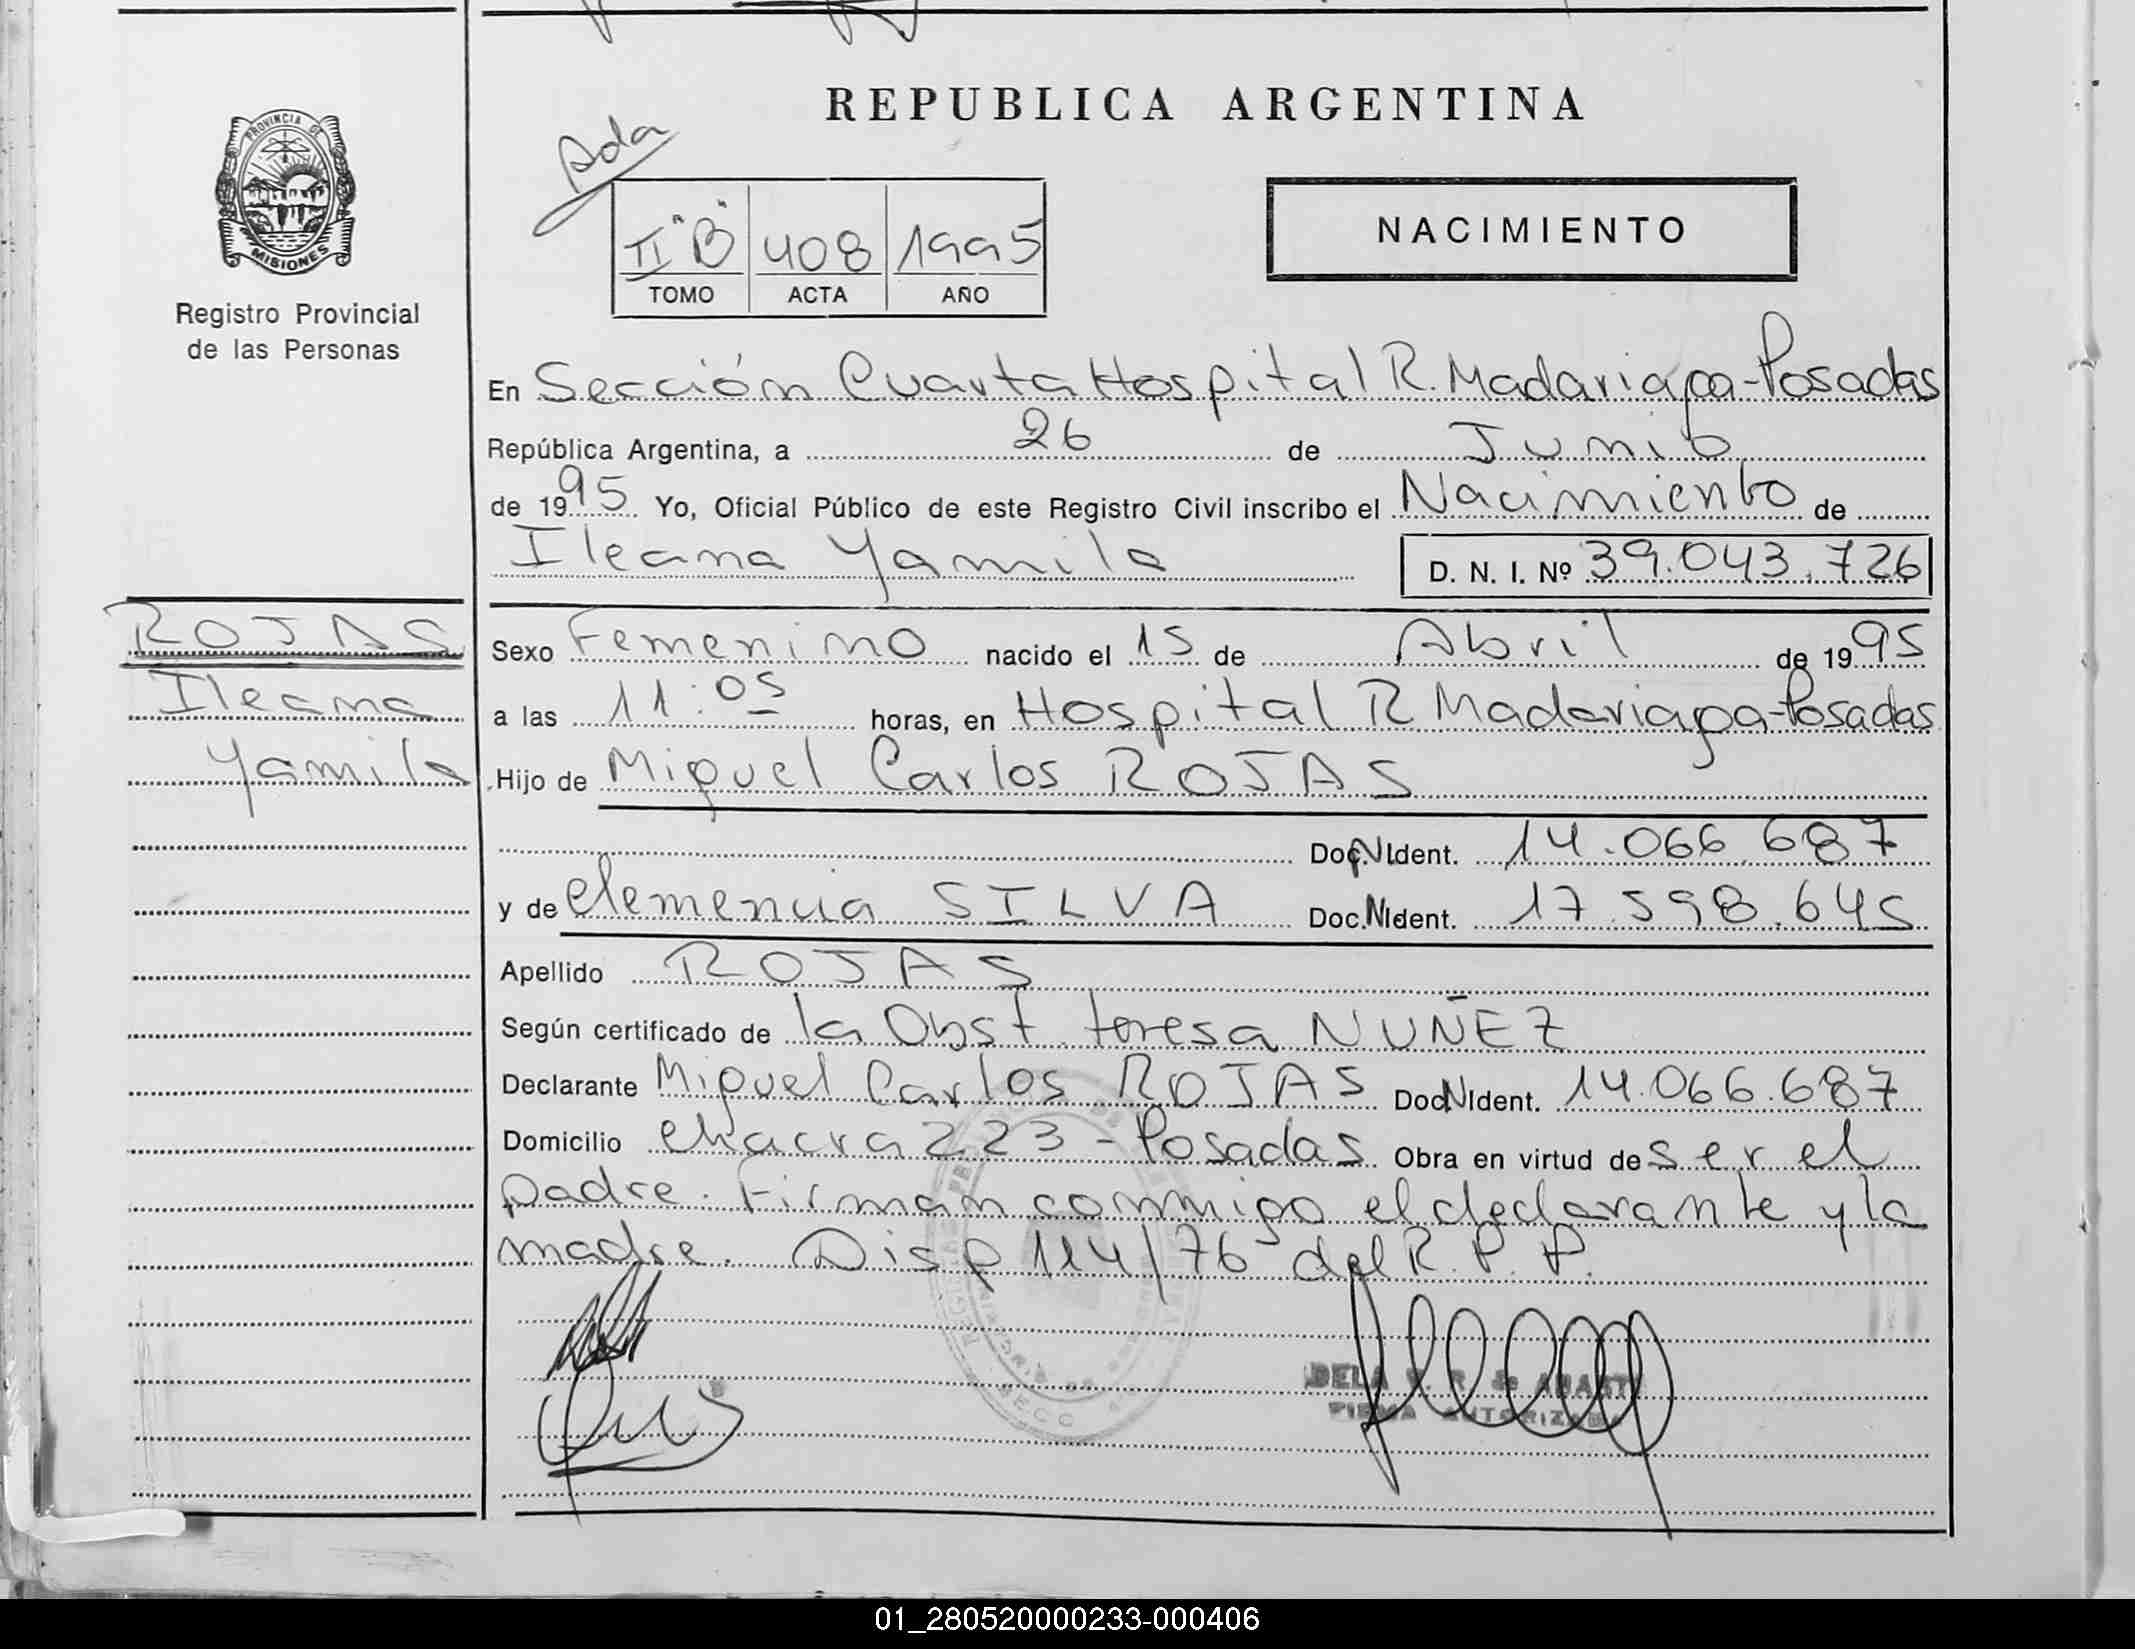 REPUBLICA ARGENTINA
Ada
PROVINCIA DE
MISIONES
Registro Provincial
de las Personas
II "B" 408 1995
TOMO ACTA AÑO
NACIMIENTO
En Sección Cuarta Hospital R. Madariaga-Posadas
República Argentina, a 26 de Junio
de 1995 Yo, Oficial Público de este Registro Civil inscribo el Nacimiento de
Ileana Yamila D. N. I. Nº 39.043.726
ROJAS
Ileana
Yamila
Sexo Femenino nacido el 15 de Abril de 1995
a las 11:05 horas, en Hospital R Madariaga-Posadas
Hijo de Miguel Carlos ROJAS
Doc.N.Ident. 14.066.687
y de Clemencia SILVA Doc.NIdent. 17.598.645
Apellido ROJAS
Según certificado de la Obst. Teresa NUÑEZ
Declarante Miguel Carlos ROJAS DocNIdent. 14.066.687
Domicilio Chacra 223 - Posadas Obra en virtud de ser el
padre. Firman conmigo el declarante y la
madre. Disp 114/76 del R. P. P.
FIRMA AUTORIZADA
01_280520000233-000406